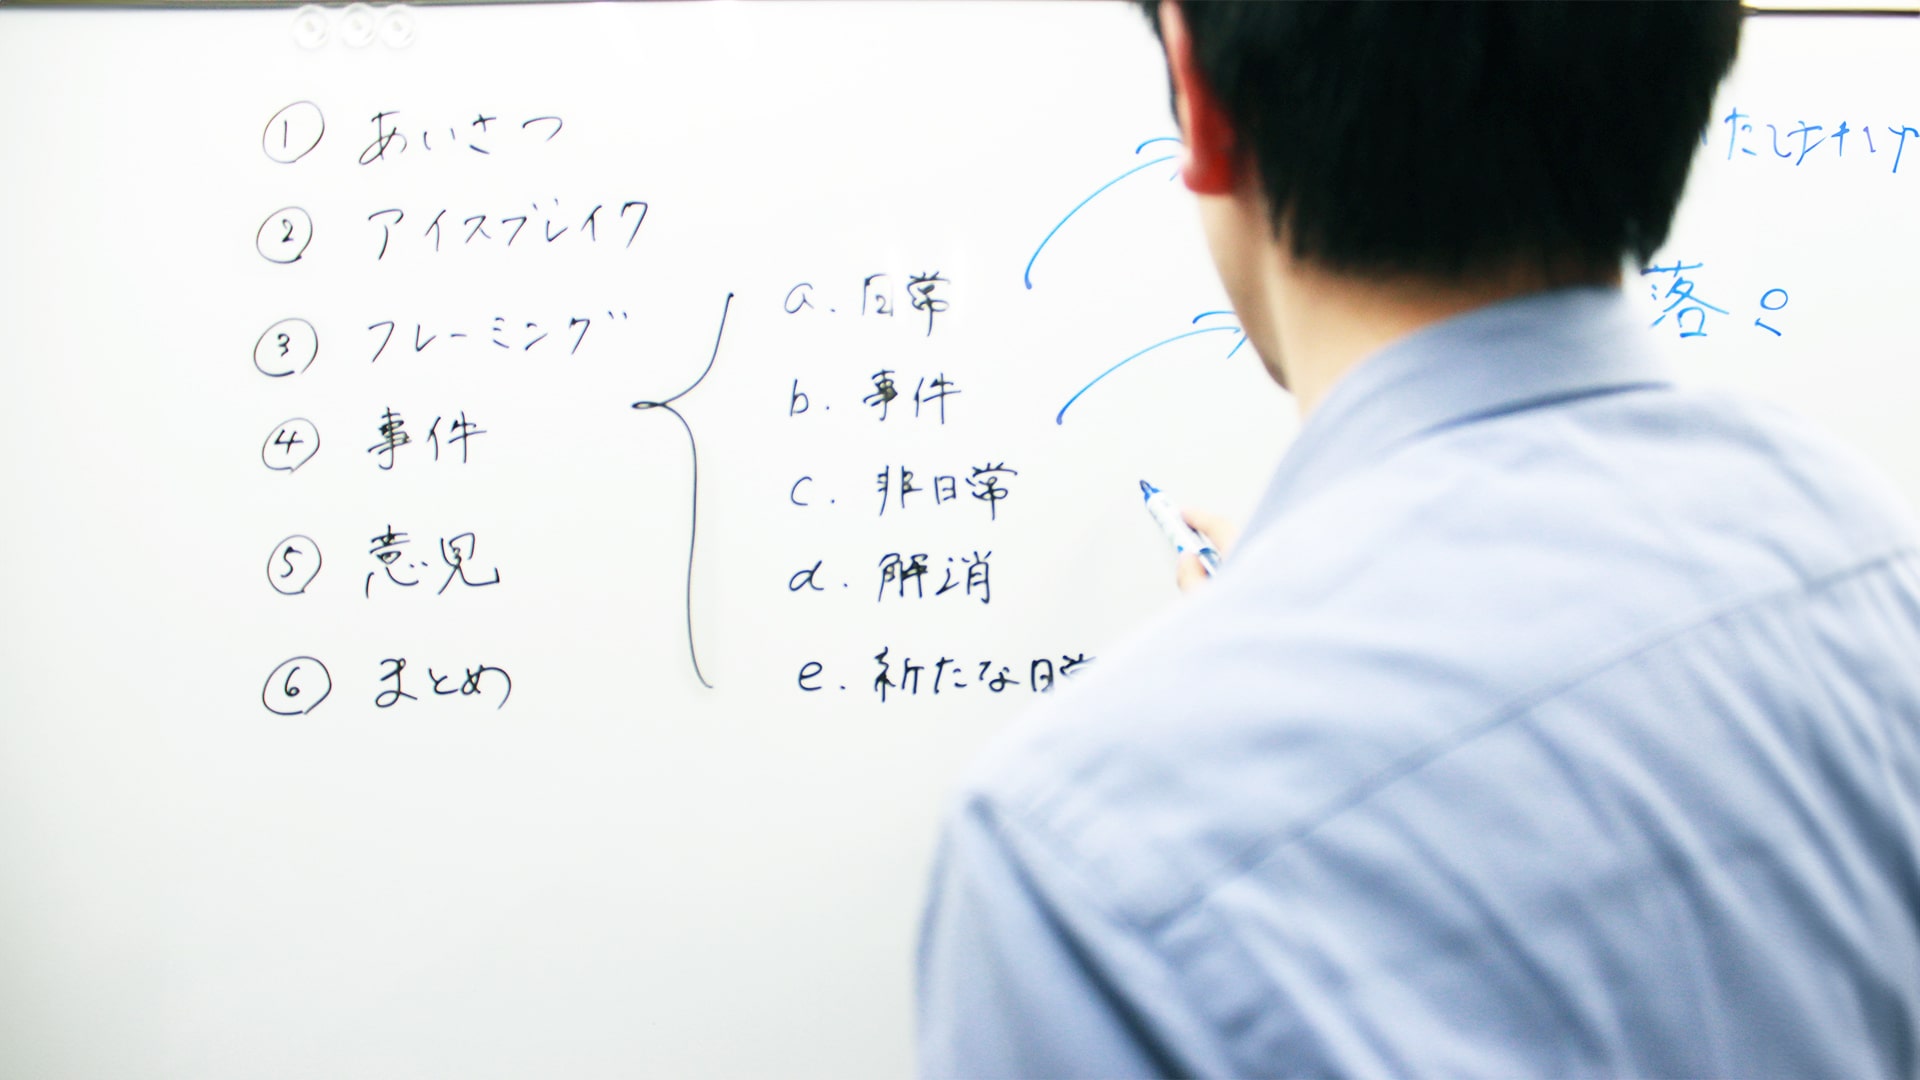 ① あいさつ
② アイスブレイク
③ フレーミング
④ 事件
⑤ 意見
⑥ まとめ
a. 日常
b. 事件
c. 非日常
d. 解消
e. 新たな日常
落